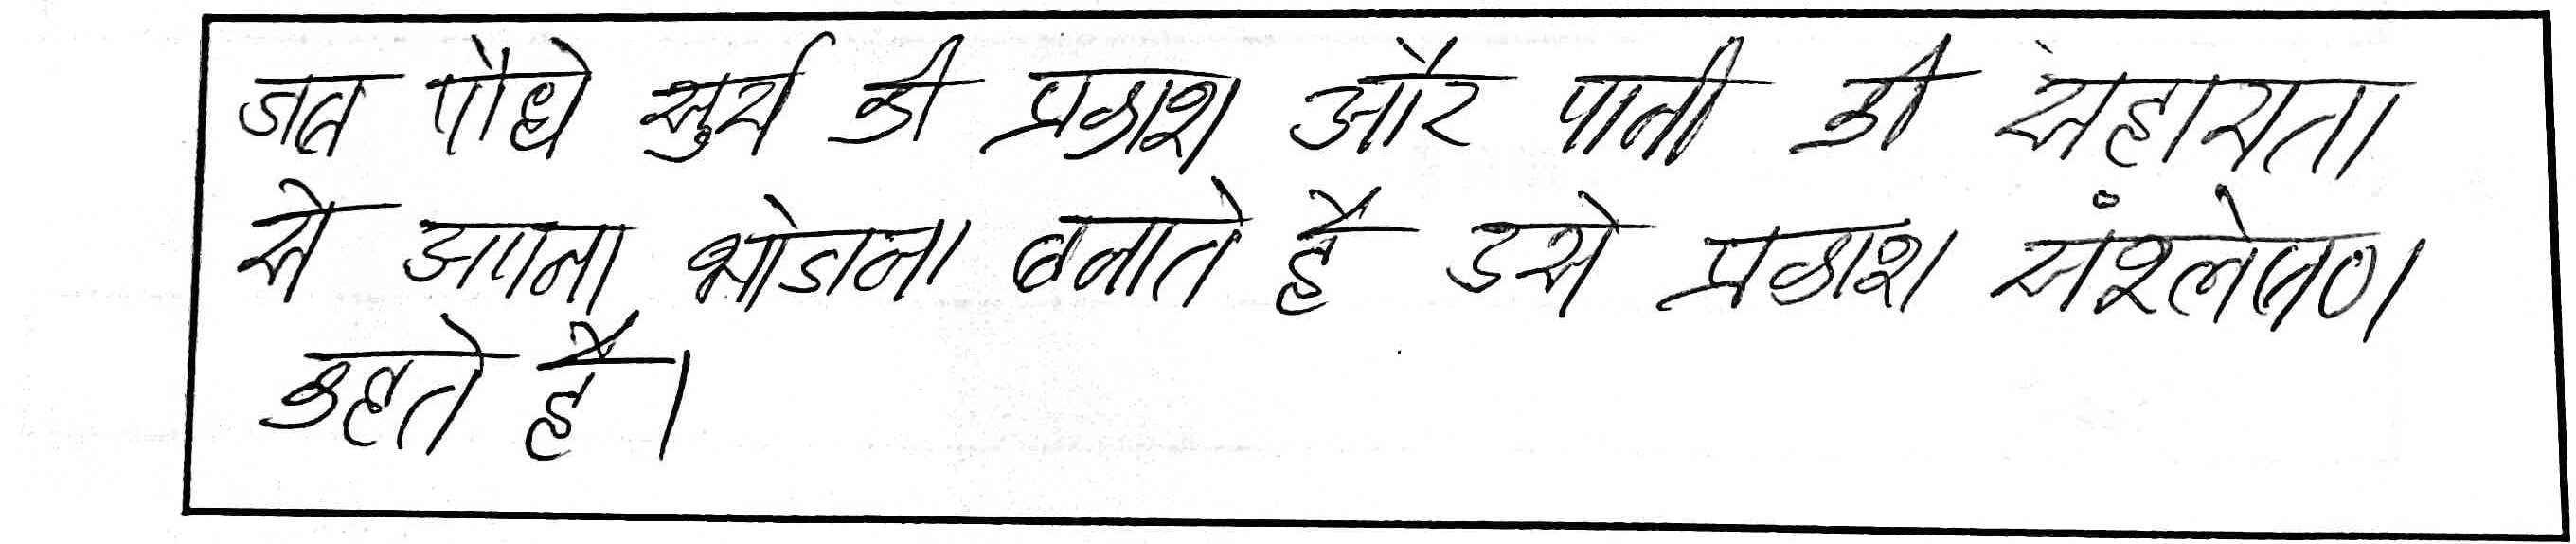 जब पौधे सुर्य की प्रकाश और पानी की सहायता
से अपना भोजन बनाते है उसे प्रकाश संश्लेषण
कहते है।